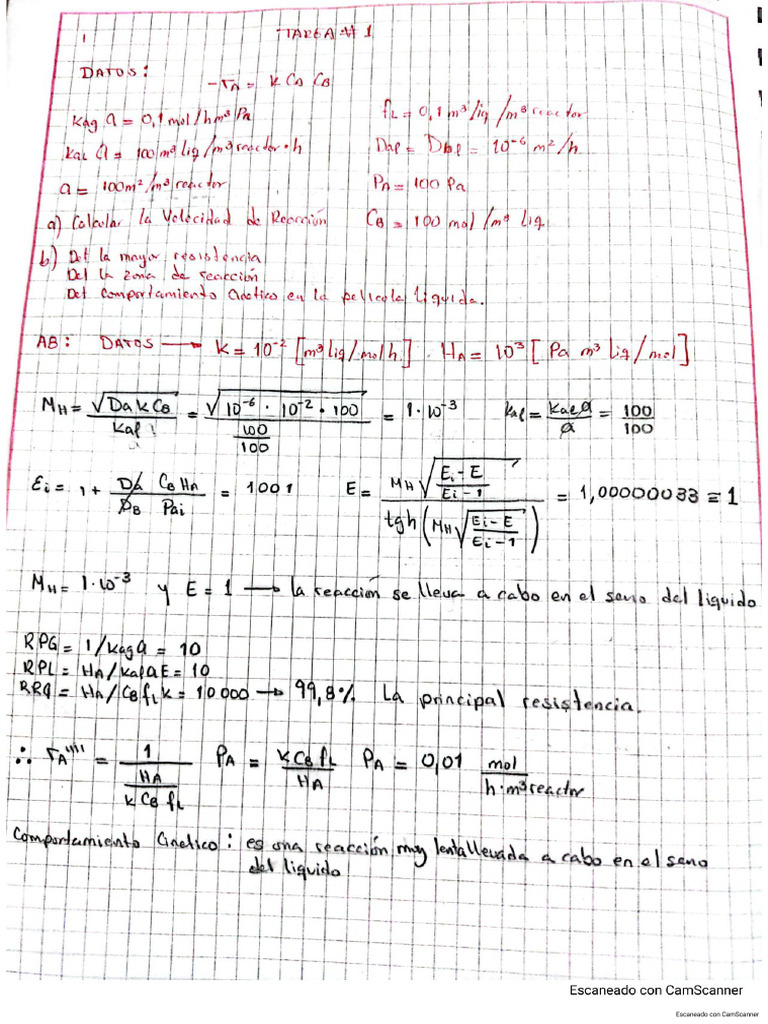 1 TAREA # 1
DATOS:
-rA = k CA CB
kag a = 0,1 mol/hm³Pa
fL = 0,1 m³liq/m³reactor
kal a = 100m³liq/m³reactor·h
DAl = DBl = 10⁻⁶ m²/h
a = 100m²/m³reactor
PA = 100 Pa
a) Calcular la Velocidad de Reacción
CB = 100 mol/m³ liq
b) Det la mayor resistencia
Det la zona de reacción
Det comportamiento Cinetico en la pelicula liquida.
AB: DATOS → k = 10⁻² [m³liq/molh] . HA = 10³ [Pa m³liq/mol]
MH = √(Da k CB) / kal = √(10⁻⁶ · 10⁻² · 100) / (100/100) = 1·10⁻³ kal = kal a / a = 100/100
Ei = 1 + DA/DB CB HA / Pai = 1001 E = MH √((Ei-E)/(Ei-1)) / tgh(MH √((Ei-E)/(Ei-1))) = 1,00000033 ≅ 1
MH = 1·10⁻³ y E = 1 → la reacción se lleva a cabo en el seno del liquido
RPG = 1/kag a = 10
RPL = HA/kal a E = 10
RRQ = HA/CB fL k = 10.000 → 99,8% La principal resistencia.
∴ rA'''' = 1 / (HA / k CB fL) PA = k CB fL / HA PA = 0,01 mol / h·m³reactor
Comportamiento Cinetico: es una reacción muy lenta llevada a cabo en el seno
del liquido
Escaneado con CamScanner
Escaneado con CamScanner